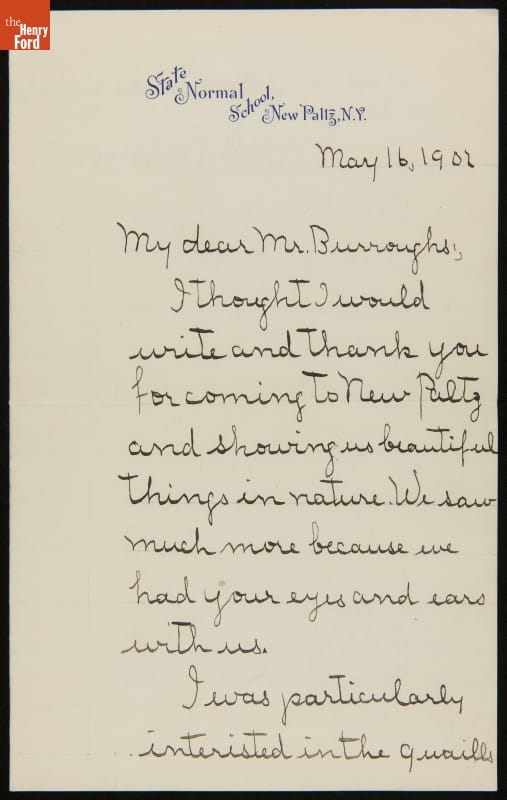 the
Henry
Ford
State Normal School, New Paltz, N.Y.
May 16, 1902
My dear Mr. Burroughs;,
I thought I would
write and thank you
for coming to New Paltz
and showing us beautiful
things in nature. We saw
much more because we
had your eyes and ears
with us.
I was particularly
interisted in the quaills